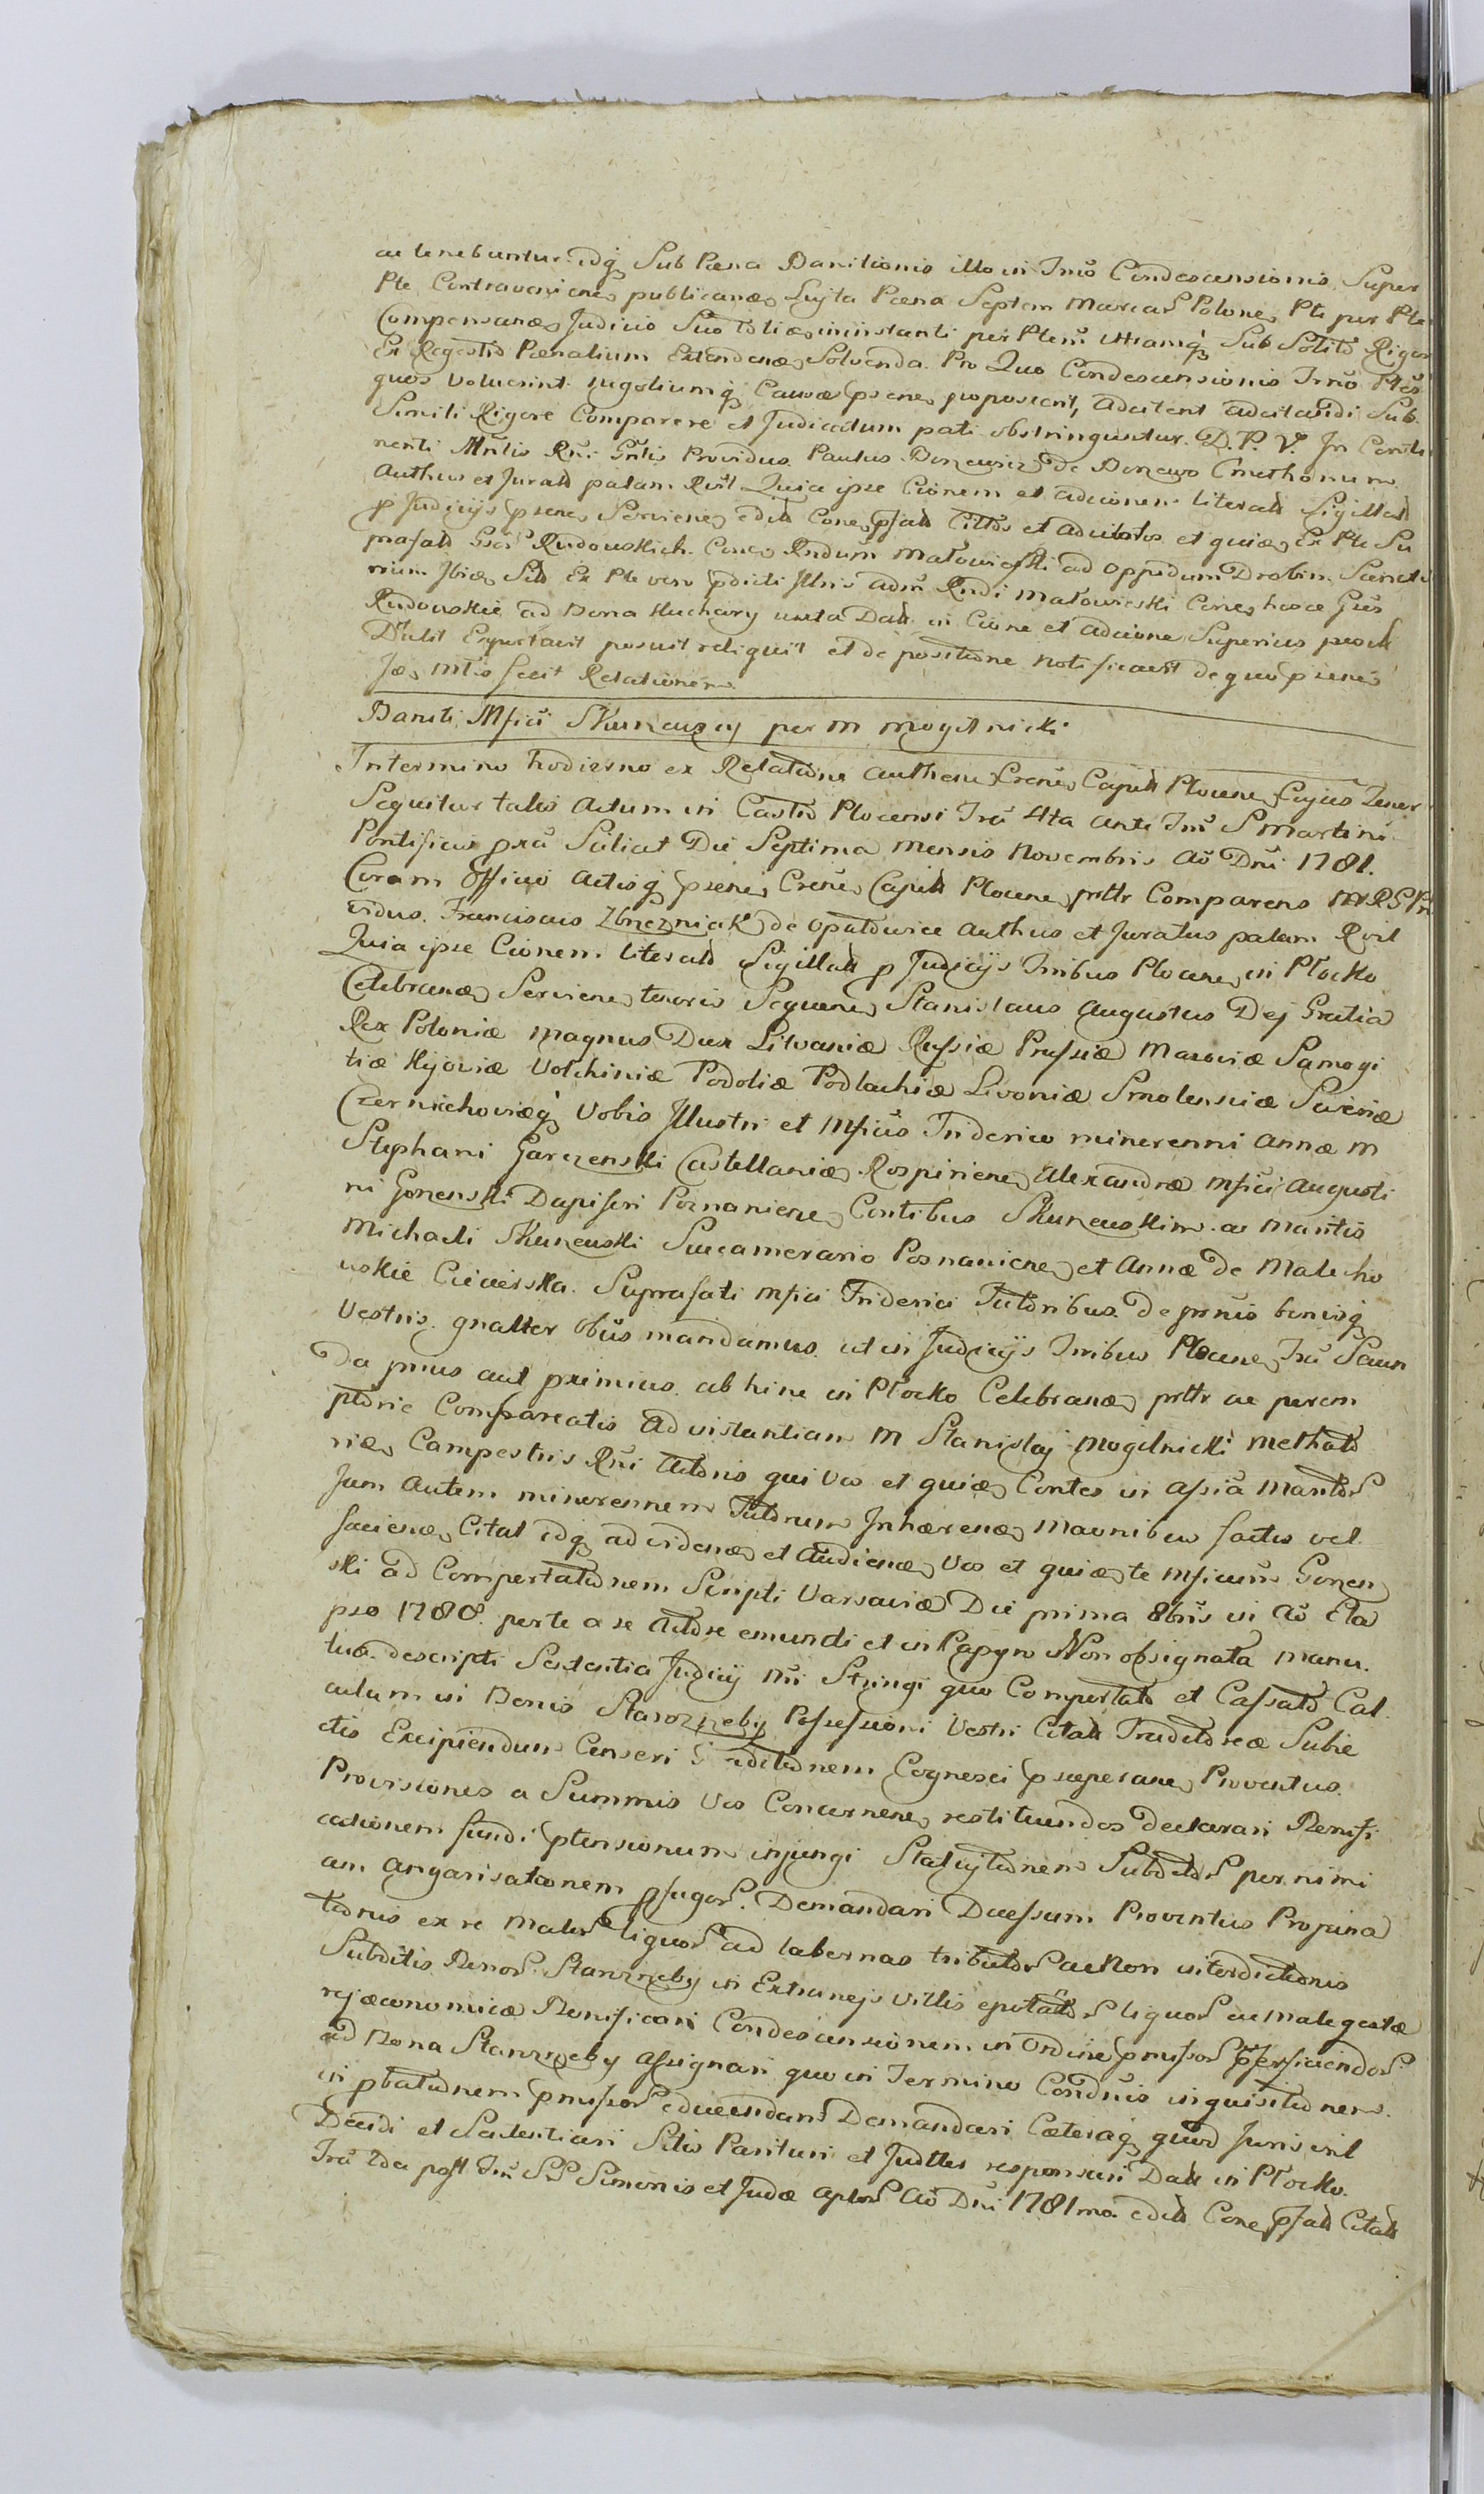 ac tenebuntur idq Sub Pæna Banitionis illo in Trno Condescensionis Super
Pte Contravenienen publicanæ Lujta Pæna Septem Marcar Polone Pti per Pte
Compensanæ Judicio Suo totiæ ininstanti per Ptem utramq Sub Solito Rigor
Ex Regestro Pænalium Extendenæ Solvenda. Pro Quo Condescensionis Trno Ptes
quos voluerint negotiumq Causæ psene proposcent, adcitent adcitandi Sub
Simili Rigore Comparere et Judicatum pati obstringuntur. D. P. V. In Conti
nenti Mrlis Rni Grlis Providus Paulus Boncwicz de Boncwo Cmethonum
Authus et Jurats palam Rcvit Quia ipse Cionem et adcionem literats Sigillats
p Judicijs psene Serviene edits Cone psats Cittos et adcitatos et quiæ Ex Pte Su
prasats Gsor Rudowskich Cone Rndum Matowieski ad oppidum Drobin Sancti
rium Ibiæ Sits Ex Pte vero pdicti Illris adm Rndi Matowieski Cone hace Grs
Rudowskie ad Bona Kuchary iuxta Dats in Cione et adcione Superius
Dtulit Exportavit posuit reliquit et de positione notificavit de quo psenes
Jæ Mtis fecit Relationem.
Baniti Mfici Skurzewscy per M Mogilnicki
In termino hodierno ex Relatione authen Crenes Capits Plocene Cujus Tenor
Sequitur talis Actum in Castro Plocensi Fria 4ta ante Fm S Martini
Pontificis pxa Scilicet Die Septima Mensis Novembris Ao Dni 1781.
Coram Officio Actisq psene Crene Capits Plocene prltr Comparens MRG Pro
vidus Franciscus Zbrzezniak de Opatowice Authus et Juratus palam Rcvit
Quia ipse Cionem literats Sigillats p Judicijs Trribus Plocene in Płocko
Celebranæ Serviene tenoris Sequene Stanislaus Augustus Dej Gratia
Rex Poloniæ Magnus Dux Litvaniæ Russiæ Prussiæ Masoviæ Samogi
tiæ Kijoviæ Volhiniæ Podoliæ Podlachiæ Livoniæ Smolensciæ Severiæ
Czernichoviæq Vobis Illustri et Mficis Friderico minorenni Annæ M
Stephani Garczenski Castellaniæ Rospiriene Alexandræ Mfici Augusti
ni Gorzenski Dapiferi Poznaniene Contibus Skurzewskim ac Maritis
Michaeli Skurzewski Succamerario Posnaniene et Annæ de Malecho
wskie Ciecierska Suprasati Mfici Friderici Tutoribus De prnis bonisq
Vestris gnalter obus mandamus ut in Judicijs Trribus Plocene Fria Secun
Da prius aut proximius ab hinc in Płocko Celebranæ prltr ac perem
ptorie Compareatis Ad instantiam M Stanislaj Mogilnicki Methats
niæ Campestris Rni Actoris qui Vos et quiæ Contes in assia Maritor
Jum Autem minorennem Tutorum Inhærenæ Maunibus factis vel
facienæ Citat idq ad videnæ et Audienæ Vos et quiæ te Mficum Gorzen
ski ad Comportationem Scripti Varsaviæ Die prima 8bris in Ao Ela
pso 1780 per te a se Actore emundi et in Papyro Non obsignata manu
tua descripti Sententia Judicij Nri Stringi quo Comportato et Cassato Cal
culum in Bonis Starozreby Possessioni Vestri Citats Traditoreæ Subie
ctis Excipiendum Censeri Traditionem Cognosci psceperane Proventus
Provisiones a Summis Vos Concernene restituendos declarari Bonifi
cationem fundi ptensionum injungi Statuitionem Subditor per nimi
am angarisationem pfugor. Demandari Decessum Proventus Propina
tionis ex re Malor liquor ad tabernas tributor ac Non interdictionis
Subditis Bonor Starozreby in Extraneis Villis epotator liquor ac male gestæ
rej æconomicæ Bonificari Condescensionem in Ordine pmissor pficiendor
ad Bona Starozreby Assignari quo in Termino Conduis inquisitionem
in pbationem pmissor educendam Demandari Cæteraq quod Juris erit
Decidi et Sententiari Sitis Parituri et Judtles responsuri Dats in Płocko
Fria 2da post Fm SS Simonis et Judæ Aplor Ao Dni 1781mo edits Cone psats Citats